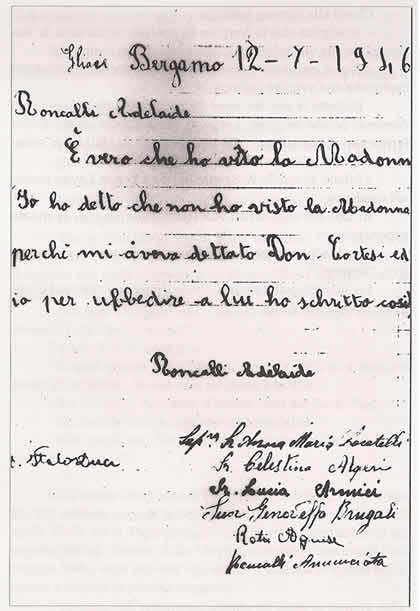 Ghiaie Bergamo 12-7-1946
Roncalli Adelaide
È vero che ho visto la Madonn
Io ho detto che non ho visto la Madonna
perchè mi aveva dettato Don. Cortesi ed
io per ubbedire a lui ho schritto così
Roncalli Adelaide
Sr. Anna Maria Locatelli
Sr. Celestina Algeri
Italo Duci
Sr. Lucia Amici
Suor Genoeffa Brugali
Rota
Roncalli Annunciata